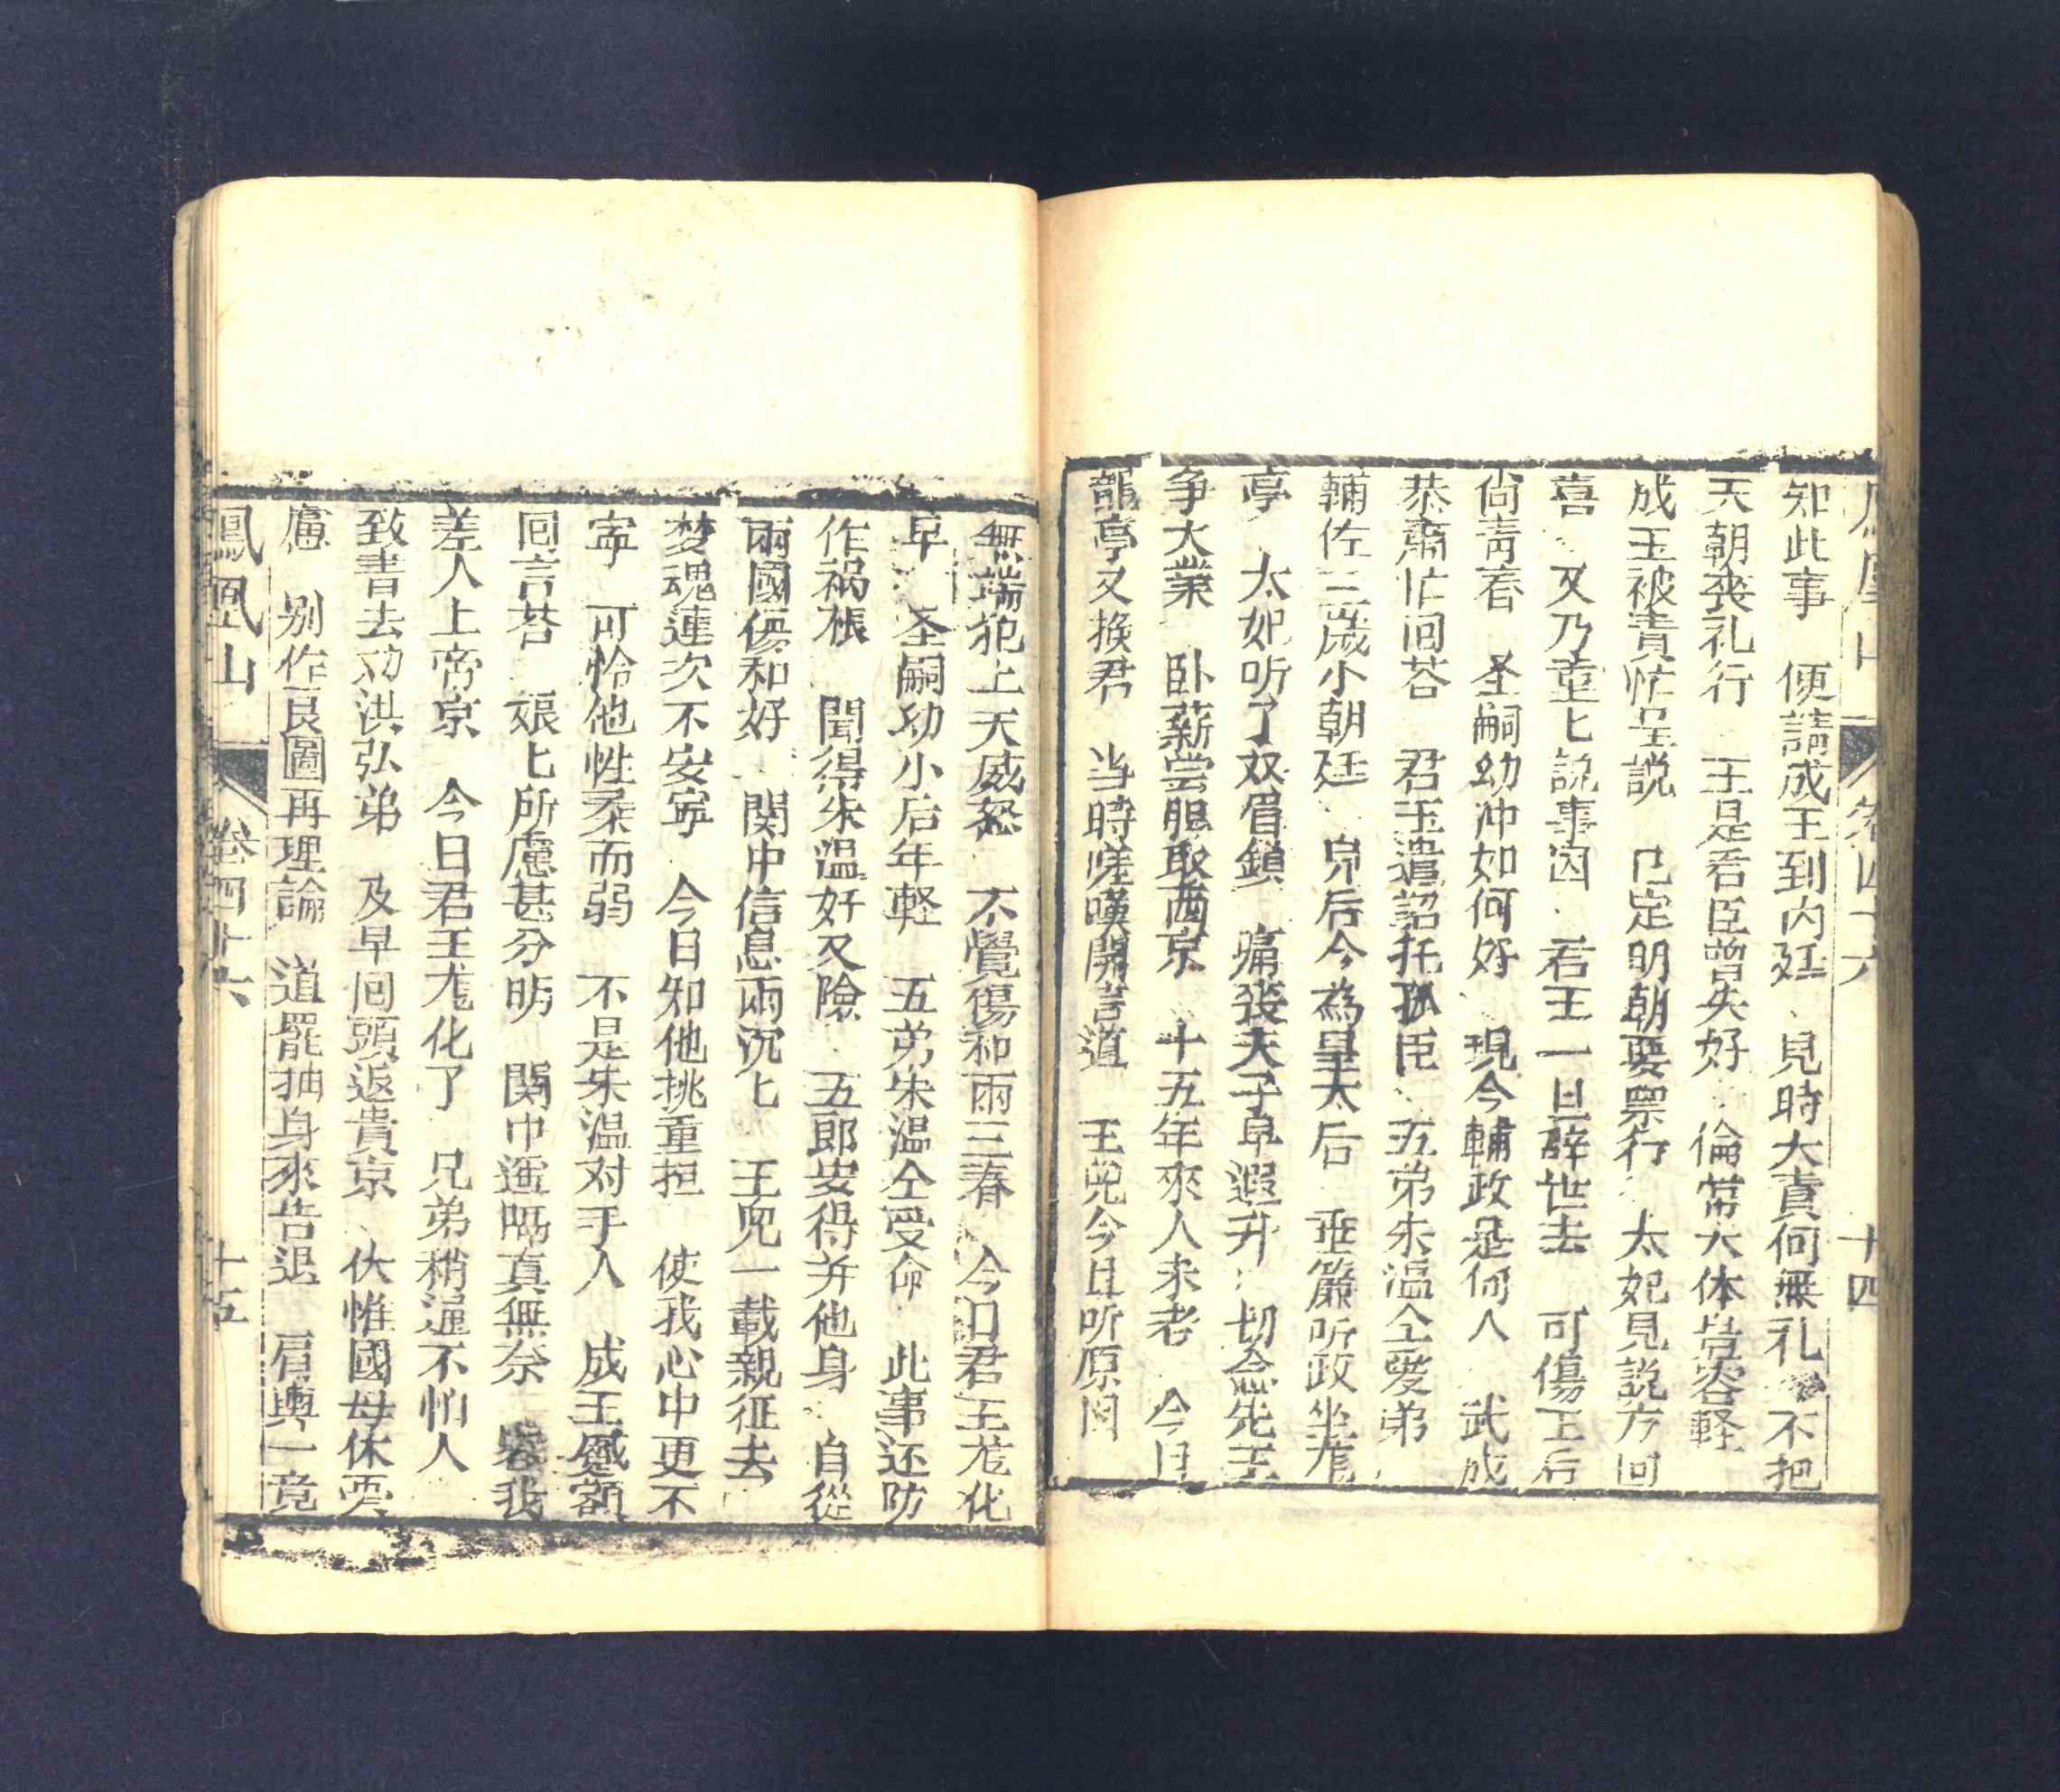 鳳凰山 卷四十六 十四
知此事 便請成王到内廷 見時大責何無礼 不把
天朝喪礼行 王是君臣曾失好 倫常大体豈容軽
成王被責忙呈説 已定明朝要祭行 太妃見説方回
喜 又乃重匕説事因 君王一旦辞世去 可傷王后
尚青春 圣嗣幼冲如何好 現今輔政是何人 武成
恭肅忙回荅 君王遣詔托孤臣 五弟朱温仝愛弟
輔佐三歲小朝廷 皃后今為皇太后 垂簾听政坐龙
亭 太妃听了双眉鎖 痛喪天子早遐升 切念先王
争大業 卧薪尝胆取西京 十五年來人未老 今日
龍亭又換君 当時嗟嘆開言道 王兒今且听原因
無端犯上天威怒 不覺傷和兩三春 今日君王龙化
早 圣嗣幼小后年軽 五弟朱温仝受命 此事还防
作祸根 聞得朱温奸又險 五郎安得并他身 自從
兩國傷和好 関中信息兩沉匕 王兒一載親征去
梦魂連次不安寧 今日知他挑重担 使我心中更不
寧 可怜他性柔而弱 不是朱温对手人 成王蹙額
回言荅 娘匕所慮甚分明 関中遥隔真無奈 容我
差人上帝京 今日君王龙化了 兄弟稍逼不怕人
致書去劝洪弘弟 及早回頭返貴京 伏惟國母休要
慮 别作良圖再理論 道罷抽身來告退 肩輿一竟
鳳凰山 卷四十六 十五